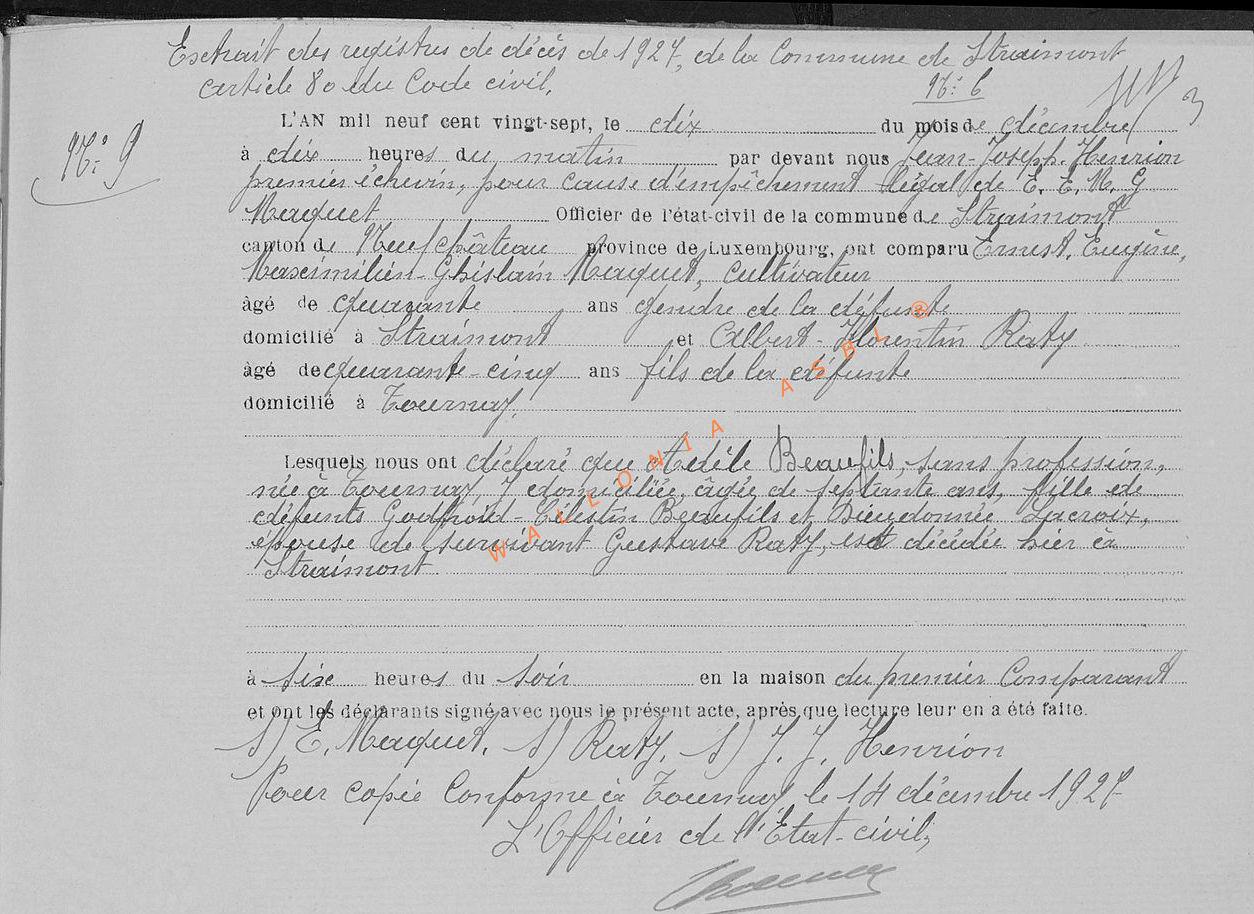 Extrait des registres de décès de 1927, de la Commune de Straimont
article 80 du Code civil.
N.° 6
N.° 9
L'AN mil neuf cent vingt-sept, le dix du mois de décembre
à dix heures du matin par devant nous Jean-Joseph Henrion
premier échevin, pour cause d'empêchement légal de E. E. M. G
Maquet Officier de l'état-civil de la commune de Straimont
canton de Neufchâteau province de Luxembourg, ont comparu Ernest, Eugène,
Maximilien-Ghislain Maquet, cultivateur
âgé de quarante ans gendre de la défunte
domicilié à Straimont et Albert-Florentin Raty
âgé de quarante-cinq ans fils de la défunte
domicilié à Tournay.
Lesquels nous ont déclaré que Adèle Beaufils, sans profession,
née à Tournay, y domiciliée, âgée de septante ans, fille de
défunts Godfroid-Célestin Beaufils et Dieudonnée Lacroix,
épouse de survivant Gustave Raty, est décédée hier à
Straimont
à six heures du soir en la maison du premier Comparant
et ont les déclarants signé avec nous le présent acte, après que lecture leur en a été faite.
s) E. Maquet, s) Raty, s) J. J. Henrion
Pour copie Conforme à Tournay le 14 décembre 1927
L'Officier de l'Etat-civil,
WALLONIA ASBL @